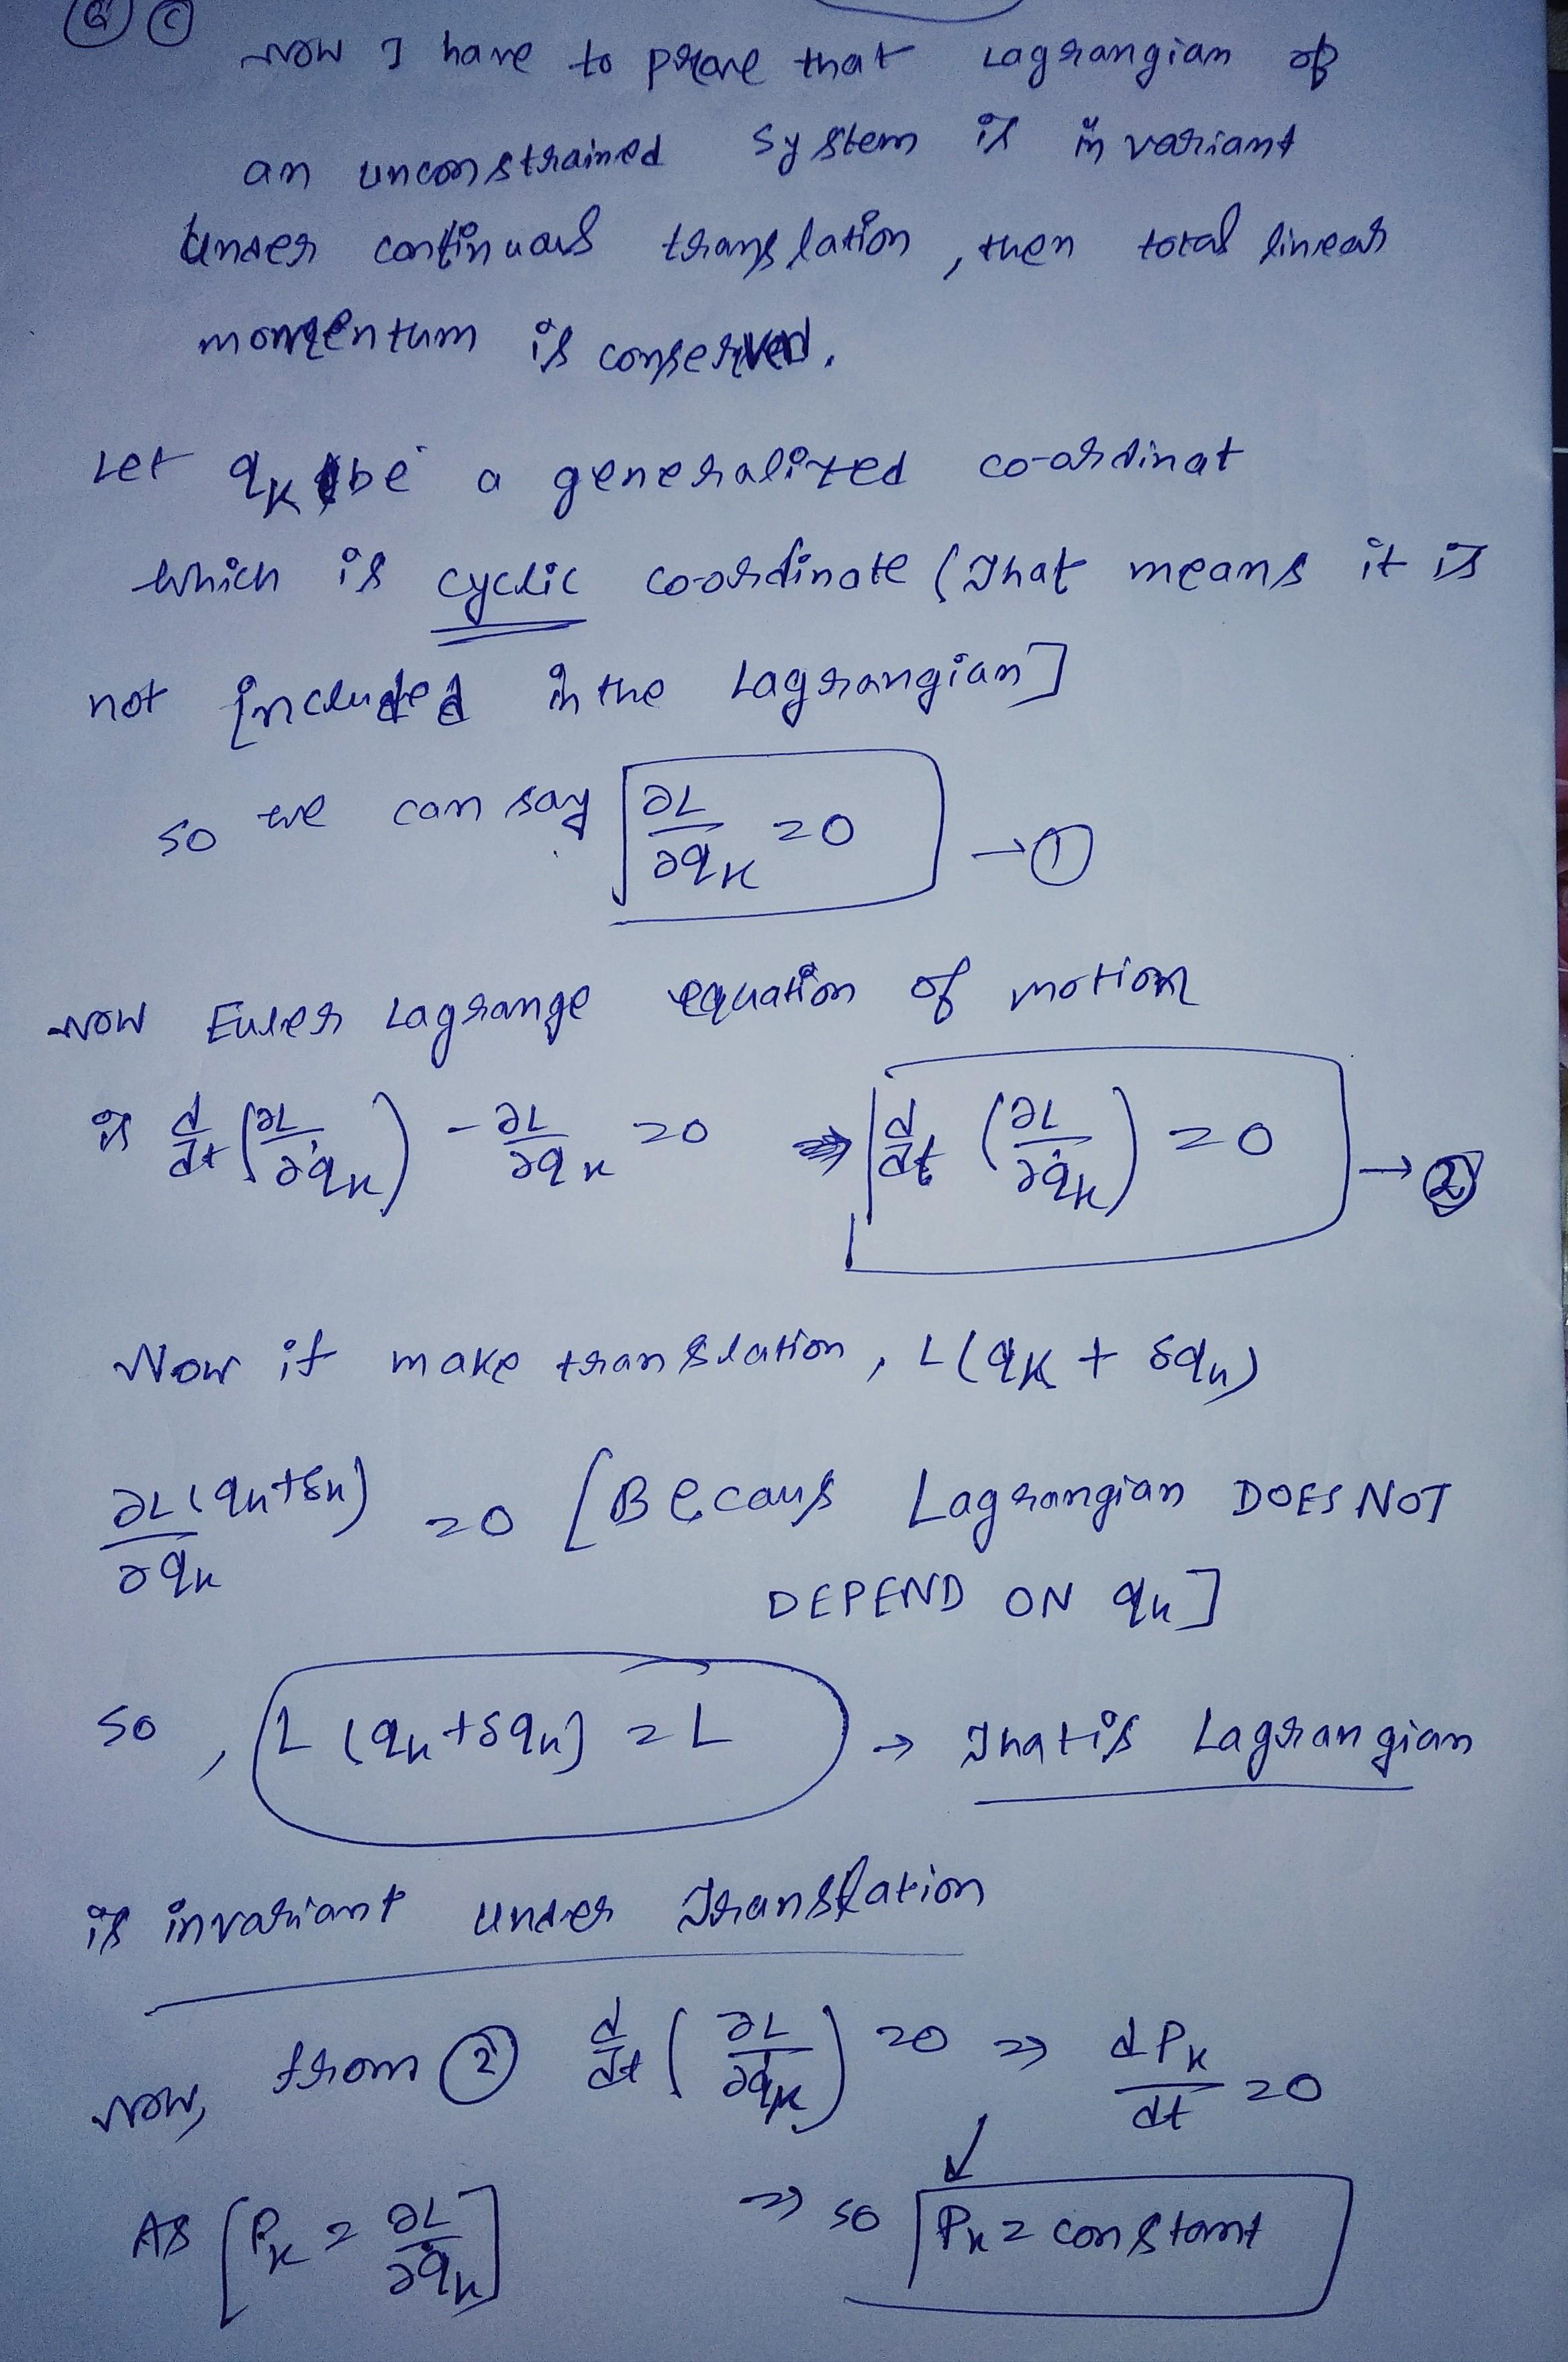 Q C
Now I have to prove that Lagrangian of
an unconstrained system is invariant
under continuous translation, then total linear
momentum is conserved.
Let qK be a generalized co-ordinat
which is cyclic co-ordinate (That means it is
not included in the Lagrangian]
so we can say ∂L/∂qK = 0 → ①
Now Euler Lagrange equation of motion
is d/dt (∂L/∂q̇K) - ∂L/∂qK = 0 ⇒ d/dt (∂L/∂q̇K) = 0 → ②
Now if make translation, L(qK + δqK)
∂L(qK+δK)/∂qK = 0 [Becaus Lagrangian DOES NOT
DEPEND ON qK]
so, L(qK+δqK) = L → That is Lagrangian
is invariant under Translation
Now, from ② d/dt (∂L/∂q̇K) = 0 ⇒ dPK/dt = 0
As [PK = ∂L/∂q̇K] ⇒ so PK = constant